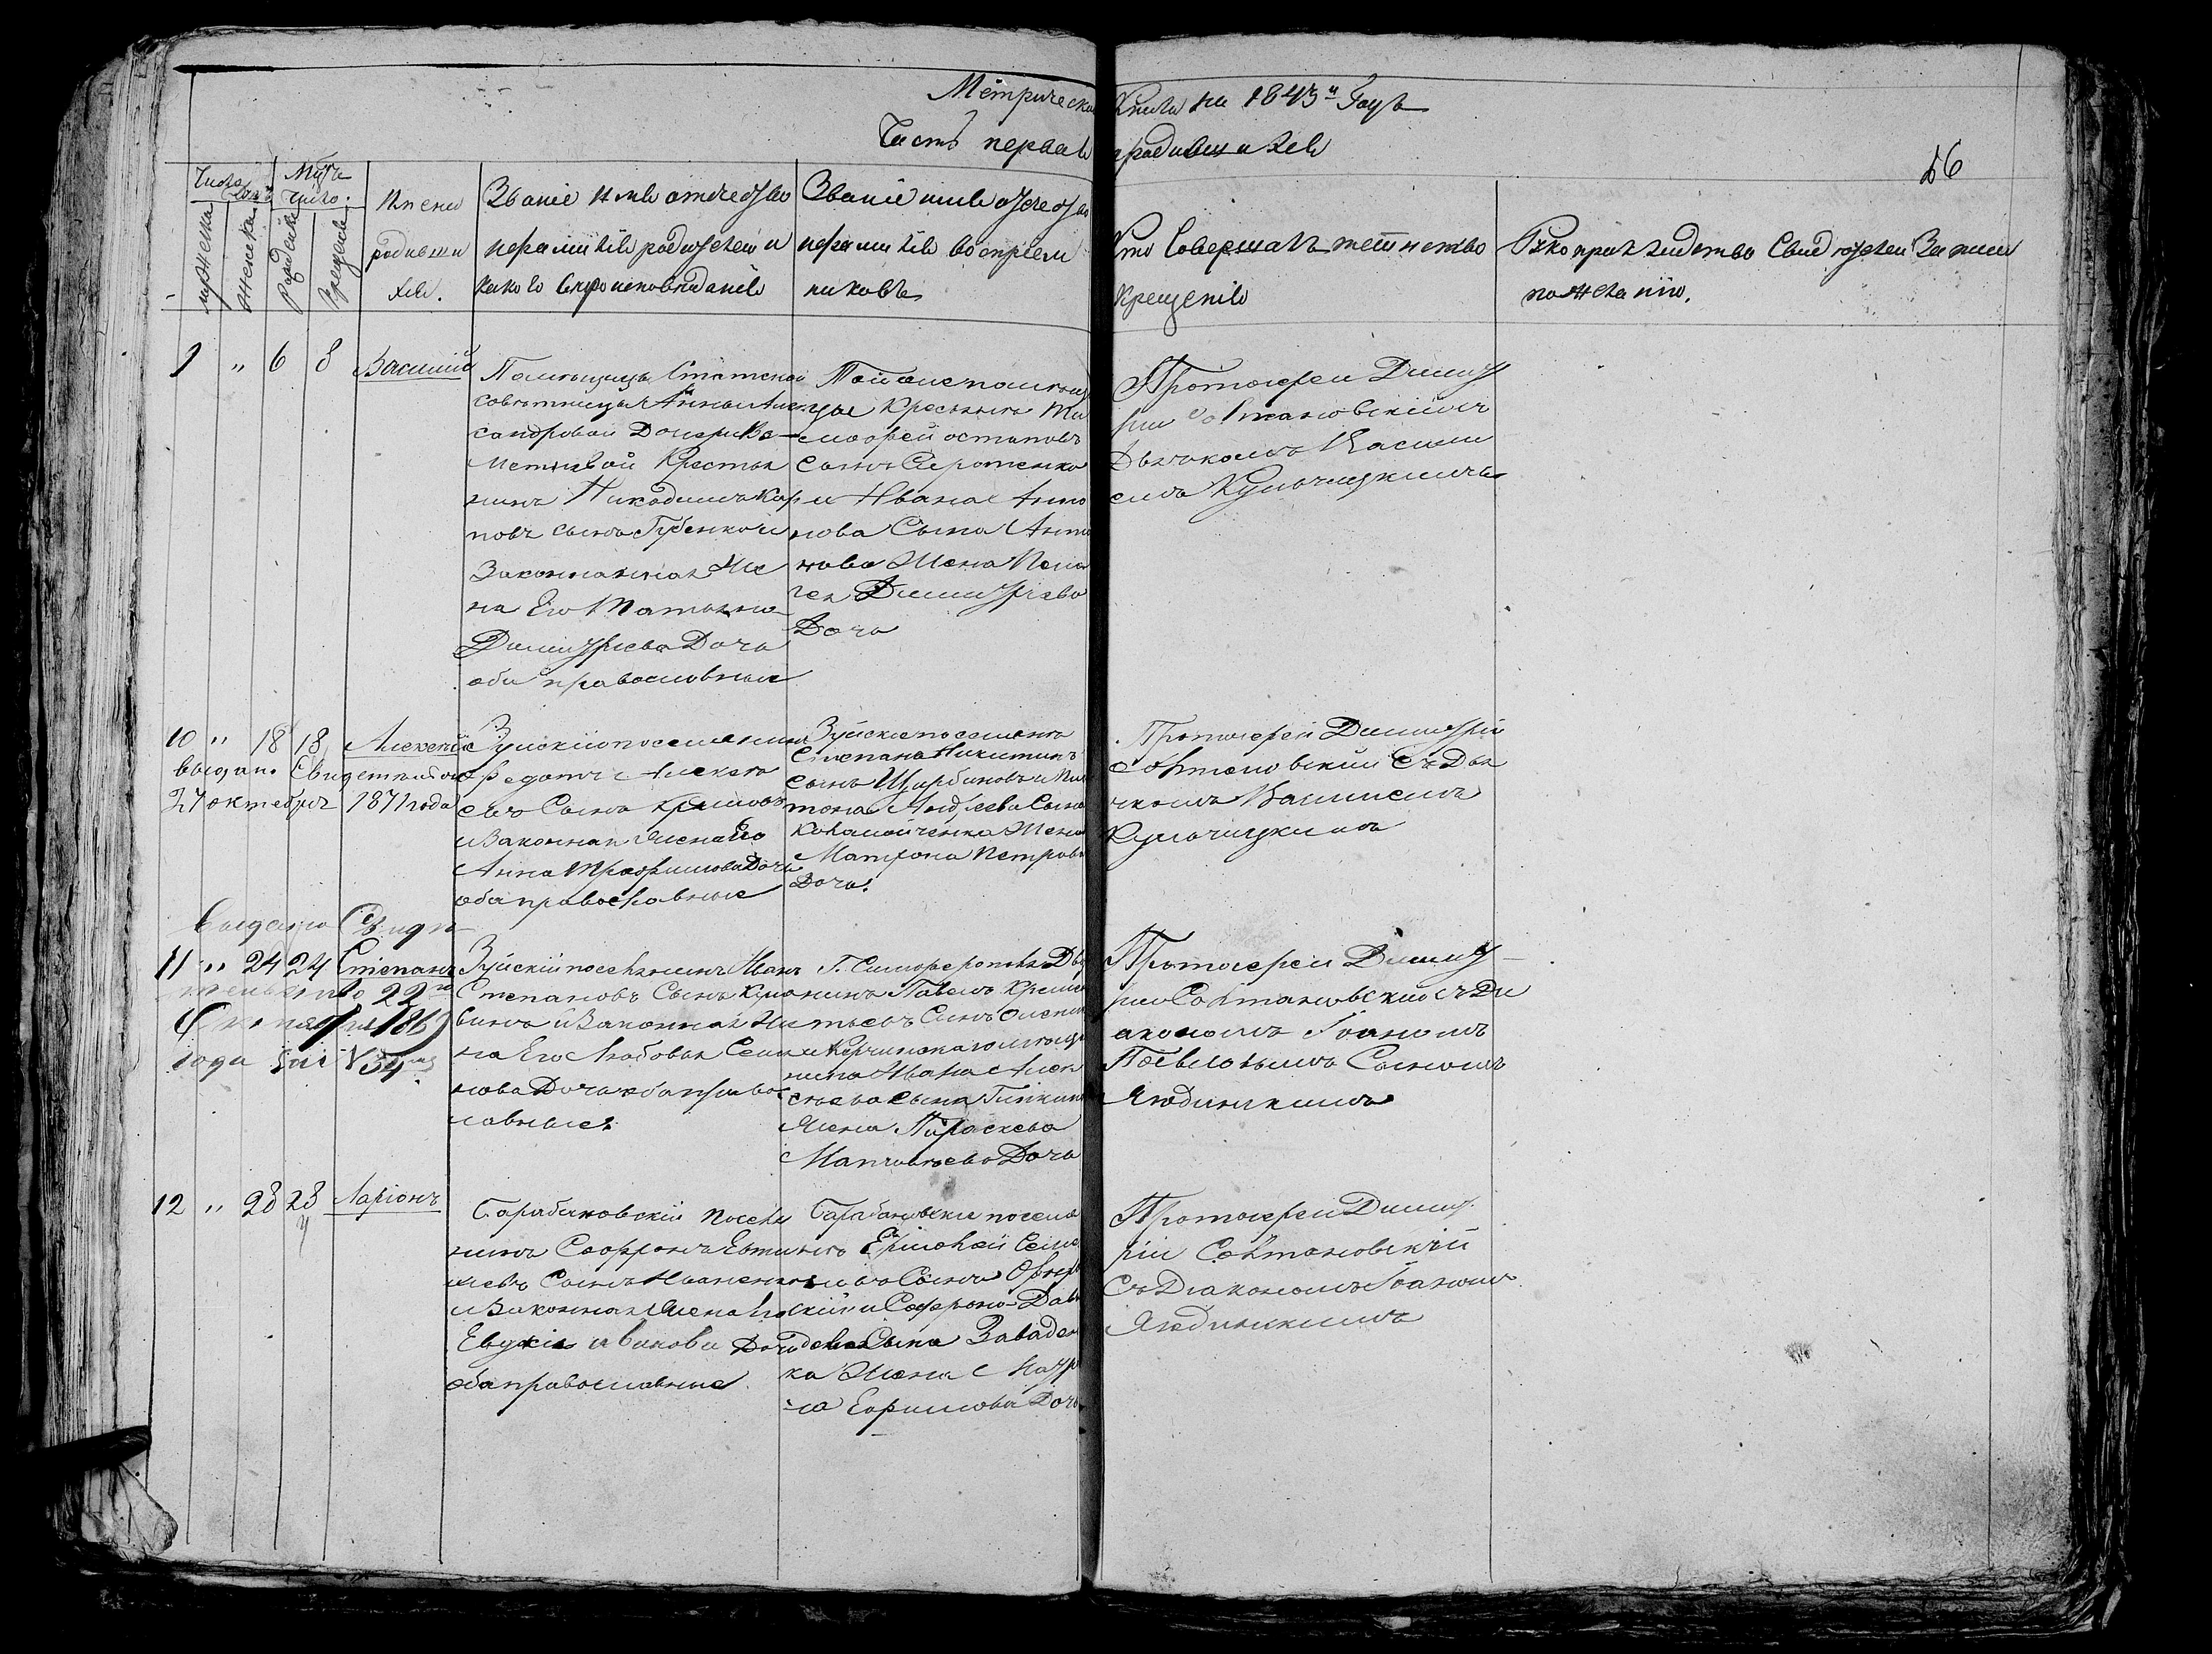 Метрическа Книга на 1843й Годъ
Часть первая о родившихся
56
Число
Мць
число.
мужеска
женска
Рожденія
Крещенія
Имена
родивши
хся.
Званіе имя отчество
и фамилія родителей и
какого вѣроисповѣданія
Званіе имя отчество
и фамилія воспріем
никовъ
Кто Совершалъ таинство
Крещенія
Рукоприкладство Свидѣтелей Записи
по желанію.
9 " 6 8 Василій
Помѣщицы Статской
Совѣтницы Анны Алек
сандровой Дочери
Крестья
нинъ Никодимъ Кар
повъ сынъ Губенко и
Законная Же
на Его Татьяна
Димитріева Дочь
оба православные
Той же помѣщ
цы Крестьяне Ти
мофей Остаповъ
сынъ Сиротенко
и Ивана Анто
нова Сына Анто
нова Жена Пела
гея Димитріева
Дочь
Протоіерей Димит
рій Солтановскій съ
Дьячкомъ Васили
емъ Кульчицкимъ
10 " 18 18 Алексѣй
выдан. Свидетельст
27 октебря 1871 года
Зуйскій поселянинъ
Федотъ Алексѣ
евъ Сынъ Крымовъ
и Законная Жена Его
Анна Трофимова Дочь
оба православные
Зуйскіе поселяне
Степанъ Никитинъ
сынъ Щербиновъ и Пла
тона Андреева Сына
Коломойченка Жена
Матрона Петрова
Дочь.
Протоіерей Димитрій
Солтановскій съ Дья
чкомъ Василіемъ
Кульчицкимъ
Выдано Свидѣ
11 " 24 24 Степанъ
тельство 22го
186
года за № 34
Зуйскій поселянинъ Иванъ
Степановъ Сынъ
винъ и Законная Же
на Его Любовь Семе
нова Дочь оба право
славные.
Г. Симферополя Дво
нинъ Павелъ
тьевъ Сынъ
и Керчинскаго мѣща
нина Ивана Алек
сѣева сына
Жена Параскева
Матвѣева Дочь
Протоіерей Димит
рій Солтановскій съ Ді
акономъ Іоаномъ
Павловымъ Сыномъ
Ягодинскимъ
12 " 28 28 Ларіонъ
Барабановскій Поселя
нинъ Софронъ Евти
хіевъ Сынъ Иваненко
и Законная Жена Его
Евдокія Иванова Дочь
оба православные.
Барабановскіе поселя
не Ермолай Семе
новъ Сынъ
скій и Софрона Дави
дова Сына Заваден
ка Жена Мавр
на Ефимова Дочь
Протоіерей Димит
рій Солтановскій
Съ Діакономъ Іоаномъ
Ягодинскимъ